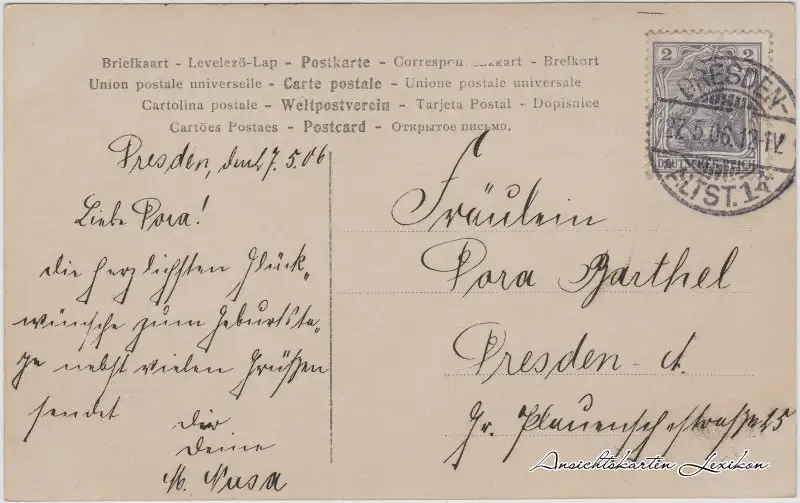 Briefkaart - Levelezö-Lap - Postkarte - Correspondenzkart - Brefkort
Union postale universelle - Carte postale - Unione postale universale
Cartolina postale - Weltpostverein - Tarjeta Postal - Dopisnice
Cartões Postaes - Postcard - Открытое письмо.
2 2
DEUTSCHES REICH
DRESDEN-
27.5.06.
ALTST. 14
Dresden, den 27.5.06
Liebe Dora!
Die herzlichsten Glück„
wünsche zum Geburtsta„
ge nebst vielen Grüßen
sendet
Dir
Deine
Fräulein
Dora Barthel
Dresden - A.
Gr. Plauenschestraße 25
Ansichtskarten Lexikon